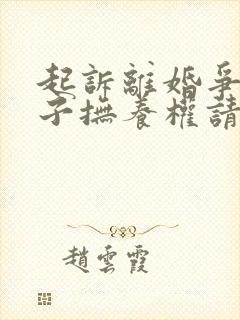 起訴離婚爭
子撫養權請
趙雲霞